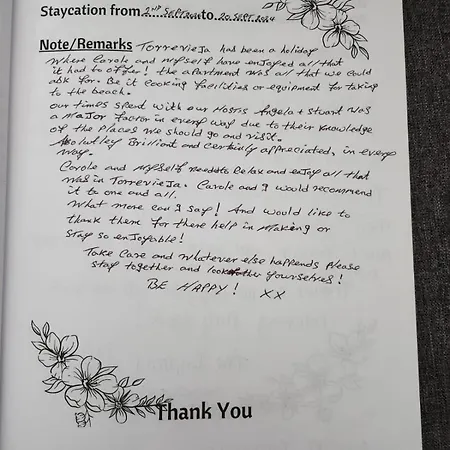 Staycation from 2nd Sep 2024 to 20 Sept 2024
Note/Remarks Torrevieja has been a holiday
where Carole and myself have enjoyed all that
it had to offer! the apartment was all that we could
ask for. Be it cooking facilities or equipment for taking
to the beach.
our times spent with our Hosts Angela + Stuart was
a major factor in every way due to their knowledge
of the places we should go and visit.
Absolutley Brilliant and certainly appreciated, in every
way.
Carole and myself needed to Relax and enjoy all that
was in Torrevieja. Carole and I would recommend
it to one and all.
What more can I say! And would like to
thank them for there help in making or
stay so enjoyable!
Take care and whatever else happends please
stay together and look after yourselves!
BE HAPPY! xx
Thank You